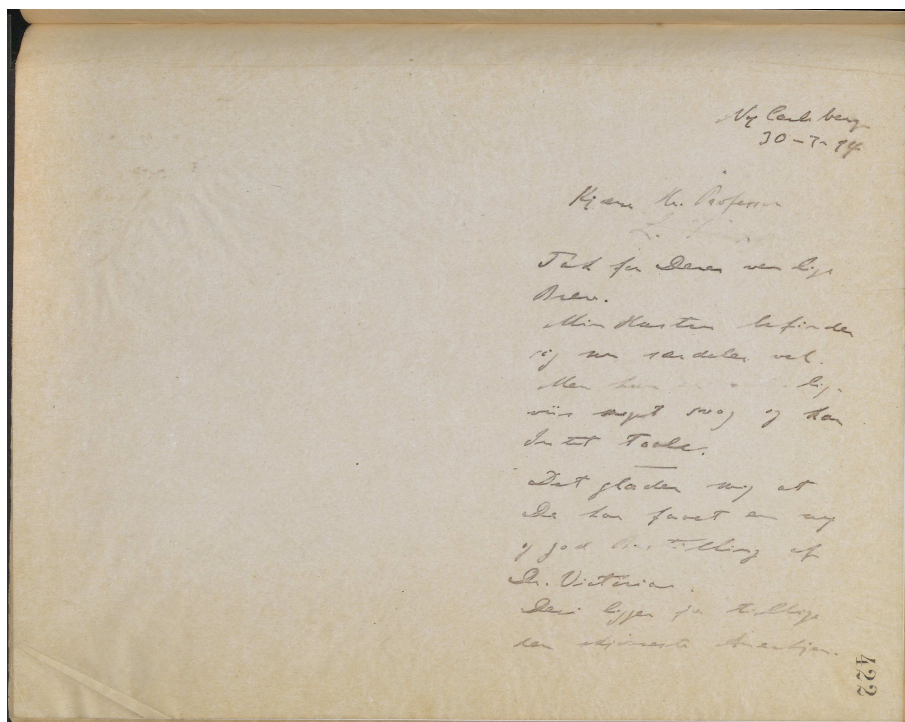 Ny Carlsberg
30-7-14
Kjære Hr. Professor
Tak for Deres venlige
Brev.
Min Hustru befinder
sig nu særdeles vel.
Men hun er lig-
viis meget svag og kan
Intet taale.
Det glæder mig at
De har faaet en ny
og god Bestilling af
Dr. Victoria.
Deri ligger jo tillige
den skjønneste
422